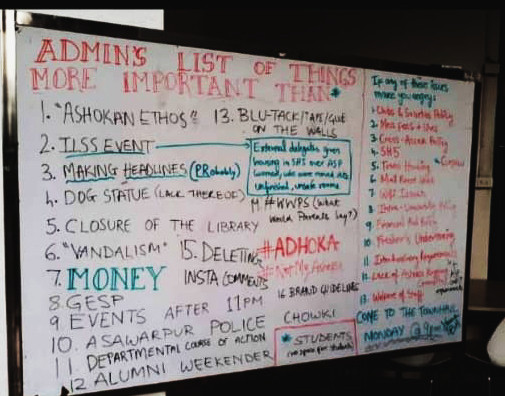 ADMIN'S LIST OF THINGS
MORE IMPORTANT THAN*
1. "ASHOKAN ETHOS"
2. ILSS EVENT
3. MAKING HEADLINES (PRobably)
4. DOG STATUE (LACK THEREOF)
5. CLOSURE OF THE LIBRARY
6. "VANDALISM"
7. MONEY
8. GESP
9 EVENTS AFTER 11PM
10. ASAWARPUR POLICE
11. DEPARTMENTAL COURSE OF ACTION
12 ALUMNI WEEKENDER
13. BLU-TACK/TAPE/GLUE
ON THE WALLS
External delegates given
housing in SH5 over ASP
unfinished, unsafe rooms
14 #WWPS (What
would Pramath Say?)
15. DELETING
INSTA COMMENTS
#ADHOKA
#NotMyAshoka
16 BRAND GUIDELINE
CHOWKI
* STUDENTS
(no space for students)
If any of these issues
make you angry:
1. Clubs & Societies Policy
2. Mess fees
3. Cross-Access Policy
4. SH5
5.
6. Mail Room
7. Issues
8. Intra-University Policy
9. Financial Aid
10.
11.
12. Lack of Ashoka
13. Welfare of Staff
COME TO THE TOWNHALL
MONDAY @ 9pm